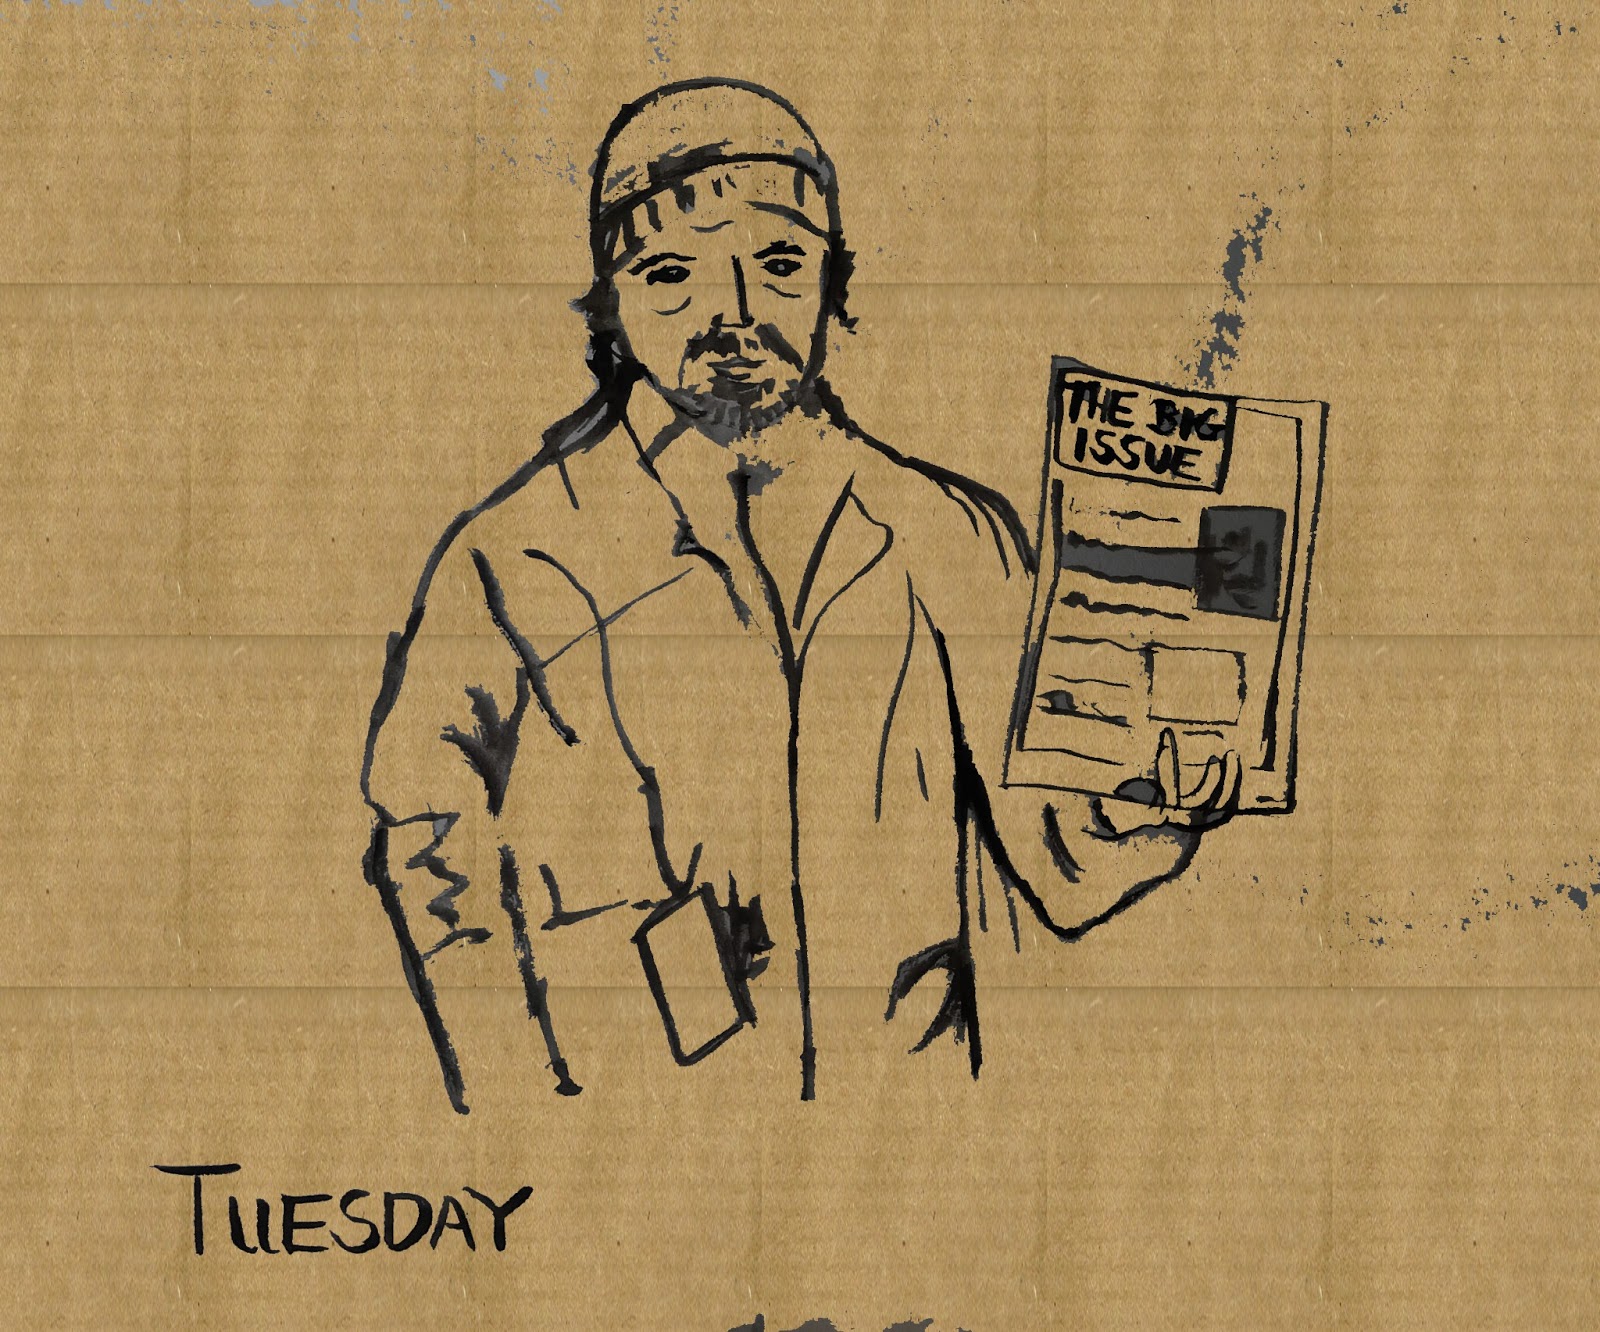 THE BIG
ISSUE
TUESDAY